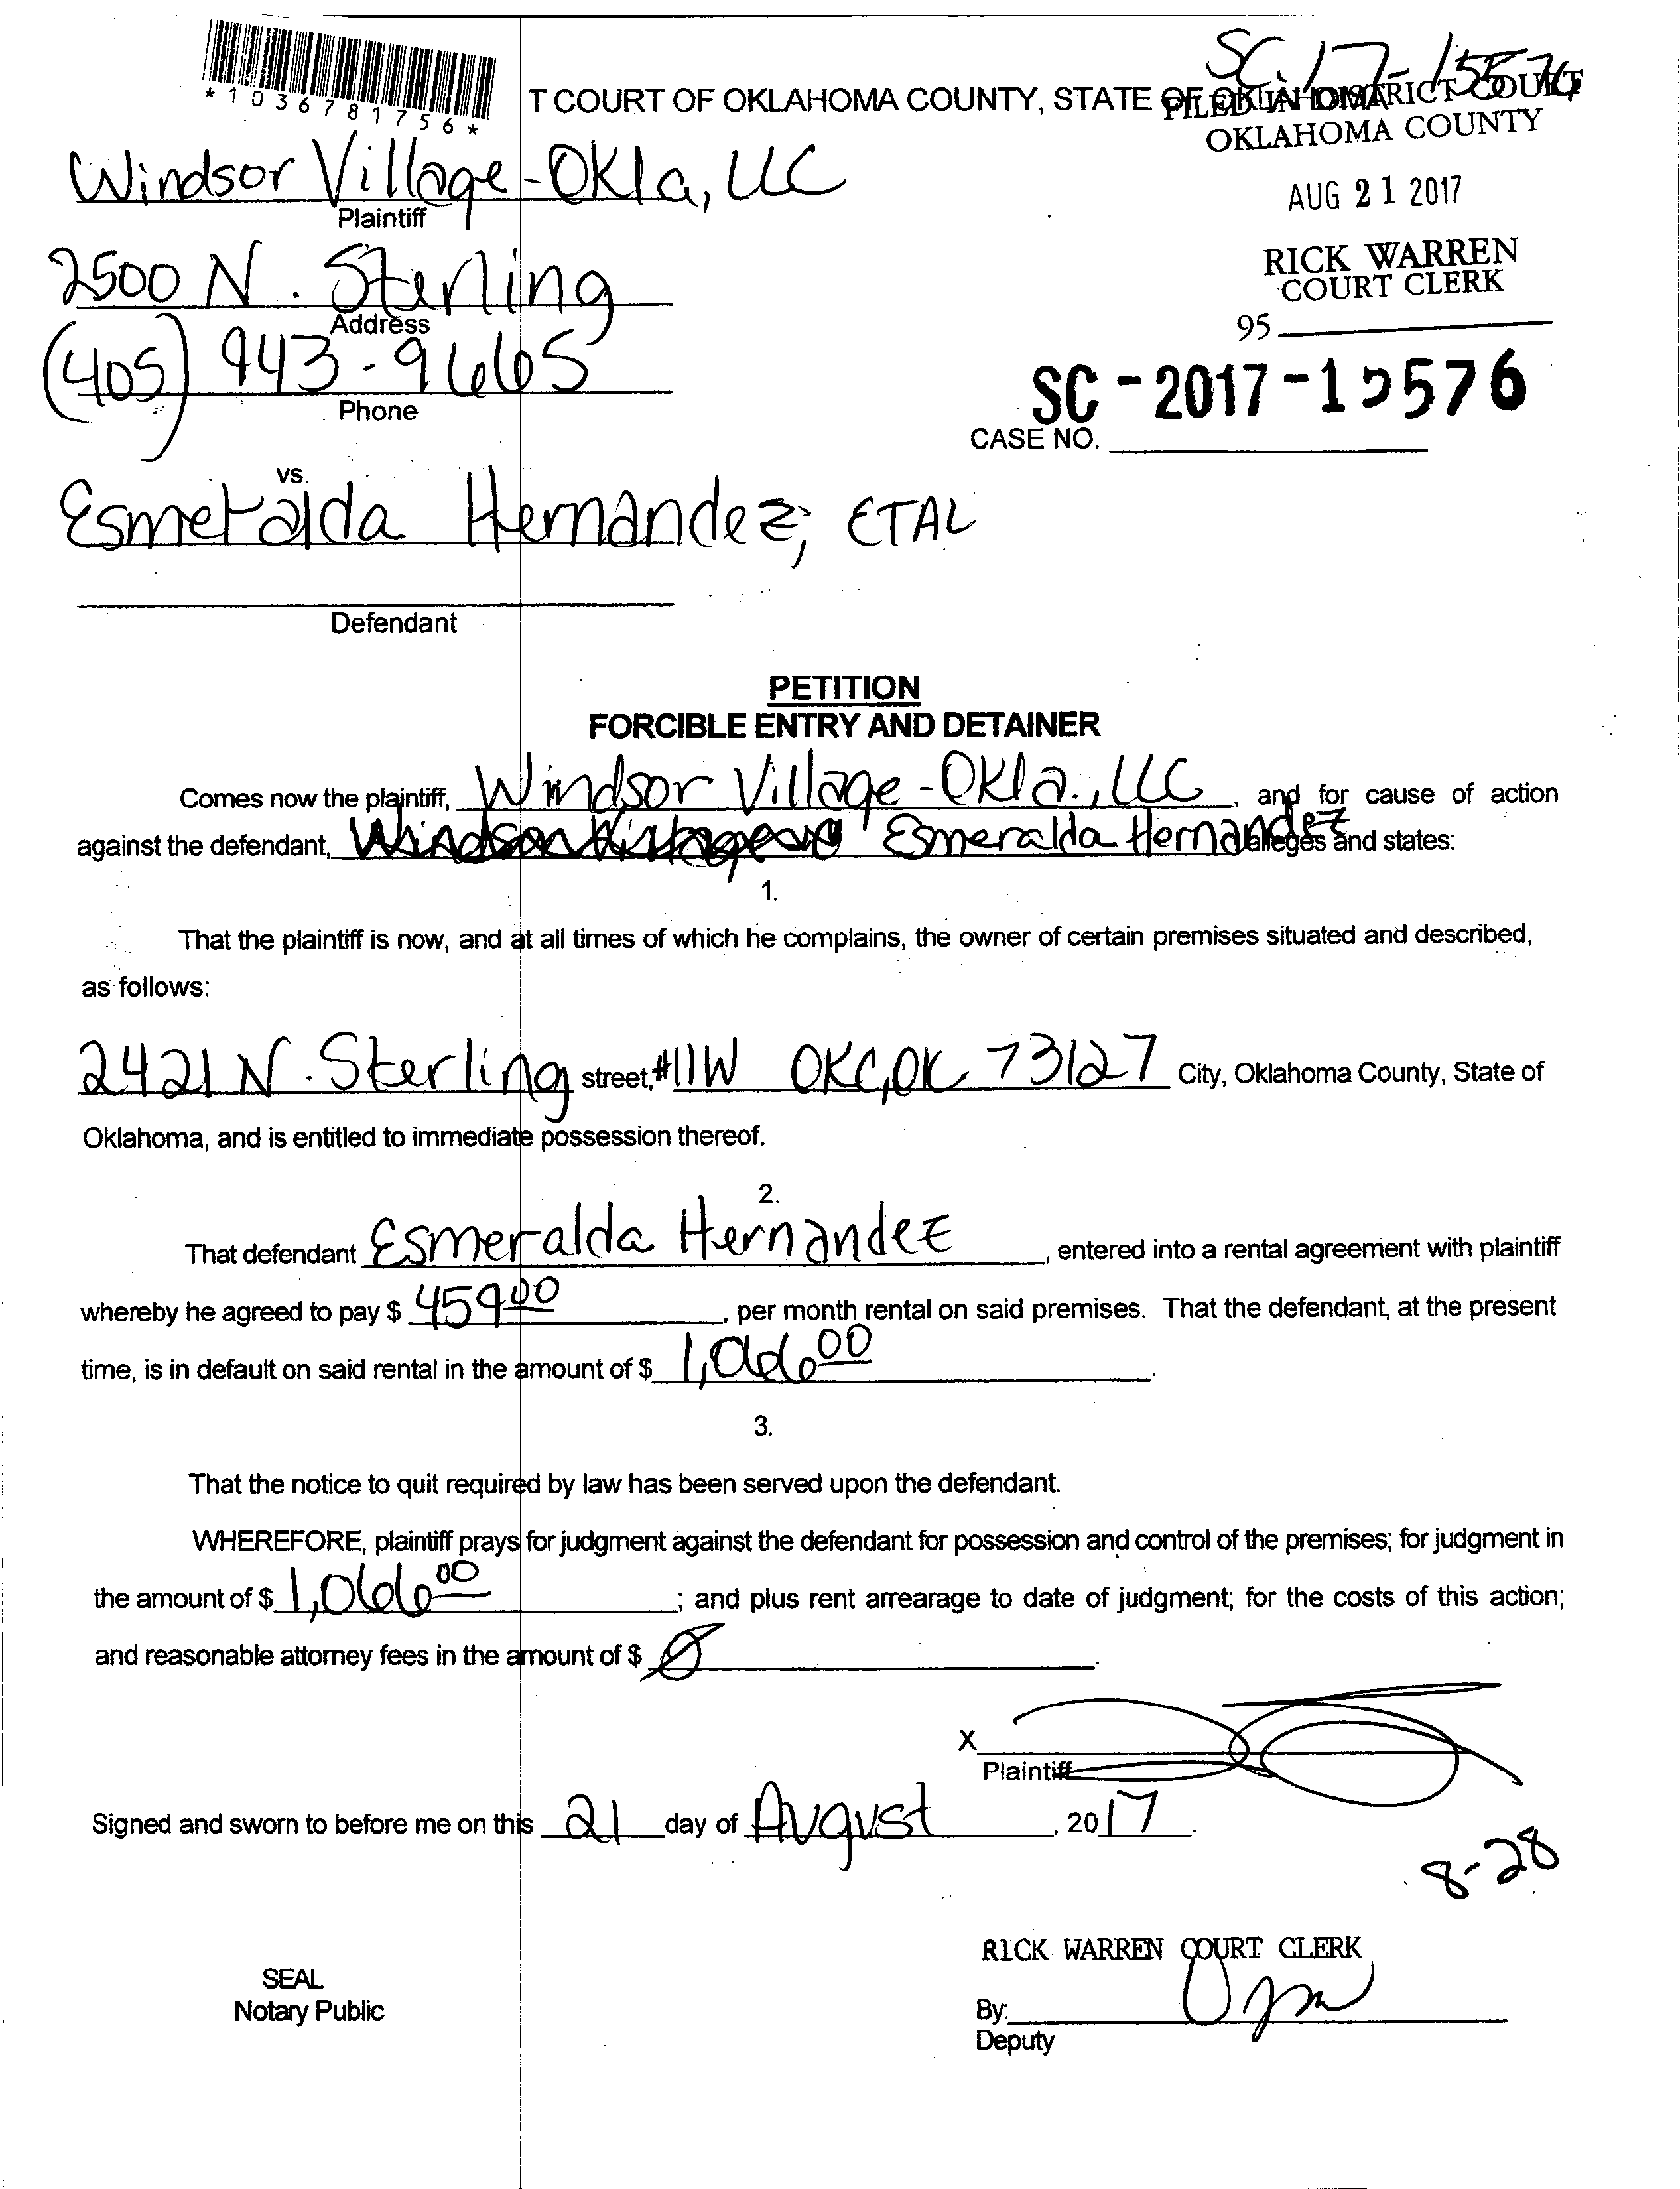 SC-17-15576
*1036781756*
T COURT OF OKLAHOMA COUNTY, STATE OF OKLAHOMA
FILED IN DISTRICT COURT
OKLAHOMA COUNTY
Windsor Village-Okla, LLC
Plaintiff
AUG 21 2017
2500 N. Sterling
Address
RICK WARREN
COURT CLERK
95
(405) 943-9665
Phone
SC-2017-15576
CASE NO.
vs.
Esmeralda Hernandez, ETAL
Defendant
PETITION
FORCIBLE ENTRY AND DETAINER
Comes now the plaintiff, Windsor Village-Okla., LLC, and for cause of action
against the defendant, Esmeralda Hernandez alleges and states:
1.
That the plaintiff is now, and at all times of which he complains, the owner of certain premises situated and described,
as follows:
2421 N. Sterling street, #11W OKC, OK 73127 City, Oklahoma County, State of
Oklahoma, and is entitled to immediate possession thereof.
2.
That defendant Esmeralda Hernandez, entered into a rental agreement with plaintiff
whereby he agreed to pay $ 459 00, per month rental on said premises. That the defendant, at the present
time, is in default on said rental in the amount of $ 1,066 00.
3.
That the notice to quit required by law has been served upon the defendant.
WHEREFORE, plaintiff prays for judgment against the defendant for possession and control of the premises; for judgment in
the amount of $ 1,066 00; and plus rent arrearage to date of judgment; for the costs of this action;
and reasonable attorney fees in the amount of $ Ø
X
Plaintiff
Signed and sworn to before me on this 21 day of August, 2017.
8-28
RICK WARREN COURT CLERK
SEAL
Notary Public
By:
Deputy